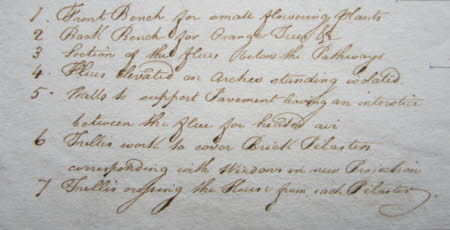 1. Front Bench for small flowering Plants
2 Back Bench for Orange Trees &c
3 Section of the flues below the Pathways
4. Flues elevated on Arches standing isolated.
5. Walls to support Pavement leaving an interstice
between the flue for heated air
6 Trellis work to cover Brick Pilasters
corresponding with Windows in new Projection
7 Trellis crossing the House from each Pilaster